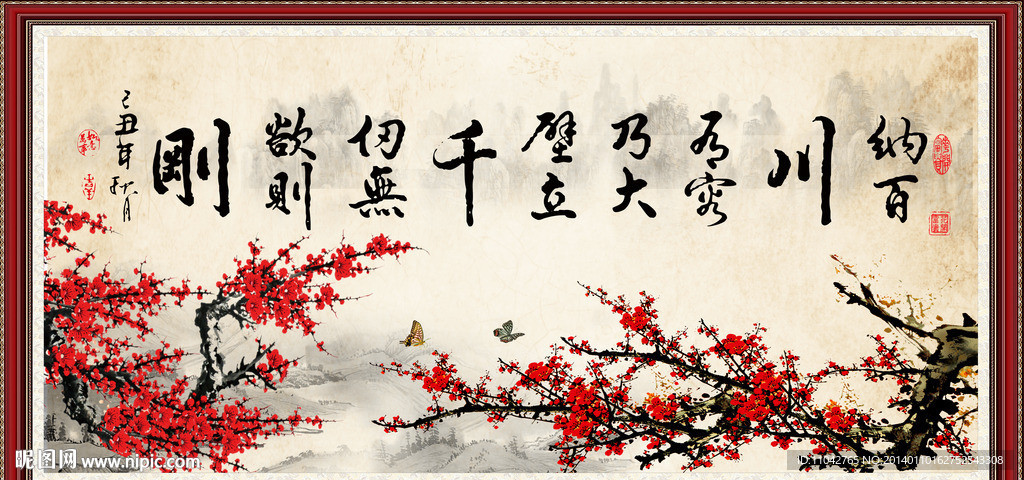 納百
川
有容
乃大
壁立
千
仞無
欲則
剛
己丑年秋月
昵图网 www.nipic.com
ID:11042765 NO:20140110162752543308